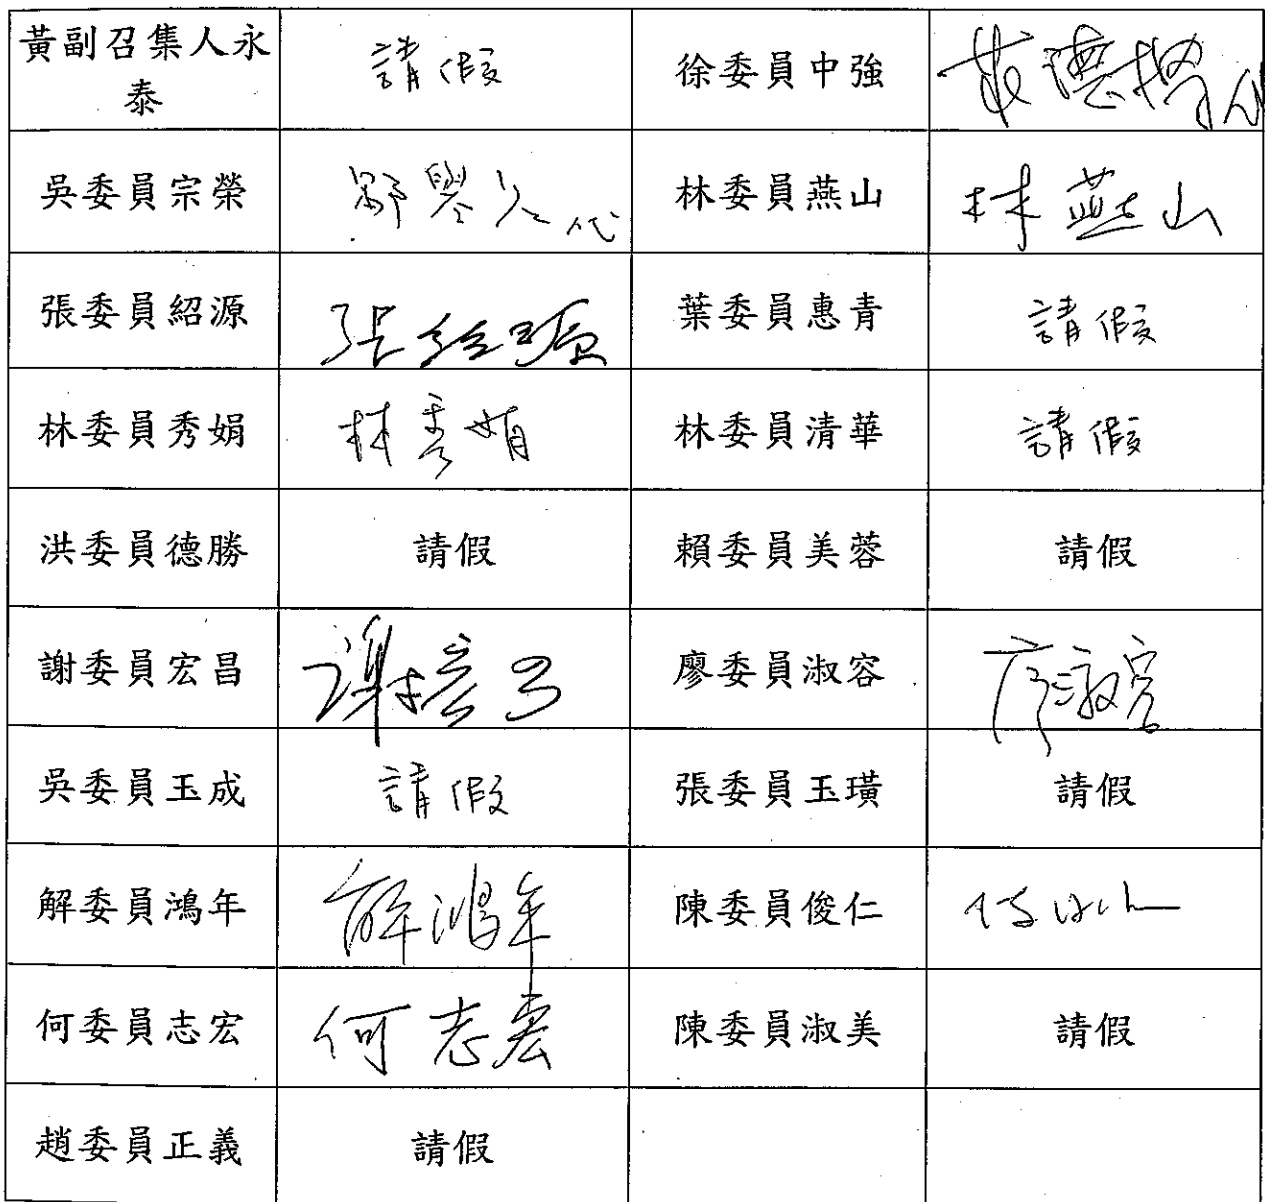 黃副召集人永
泰
請假
徐委員中強
代
吳委員宗榮
代
林委員燕山
林燕山
張委員紹源
張紹源
葉委員惠青
請假
林委員秀娟
林秀娟
林委員清華
請假
洪委員德勝
請假
賴委員美蓉
請假
謝委員宏昌
廖委員淑容
廖淑容
吳委員玉成
請假
張委員玉璜
請假
解委員鴻年
解鴻年
陳委員俊仁
何委員志宏
何志宏
陳委員淑美
請假
趙委員正義
請假